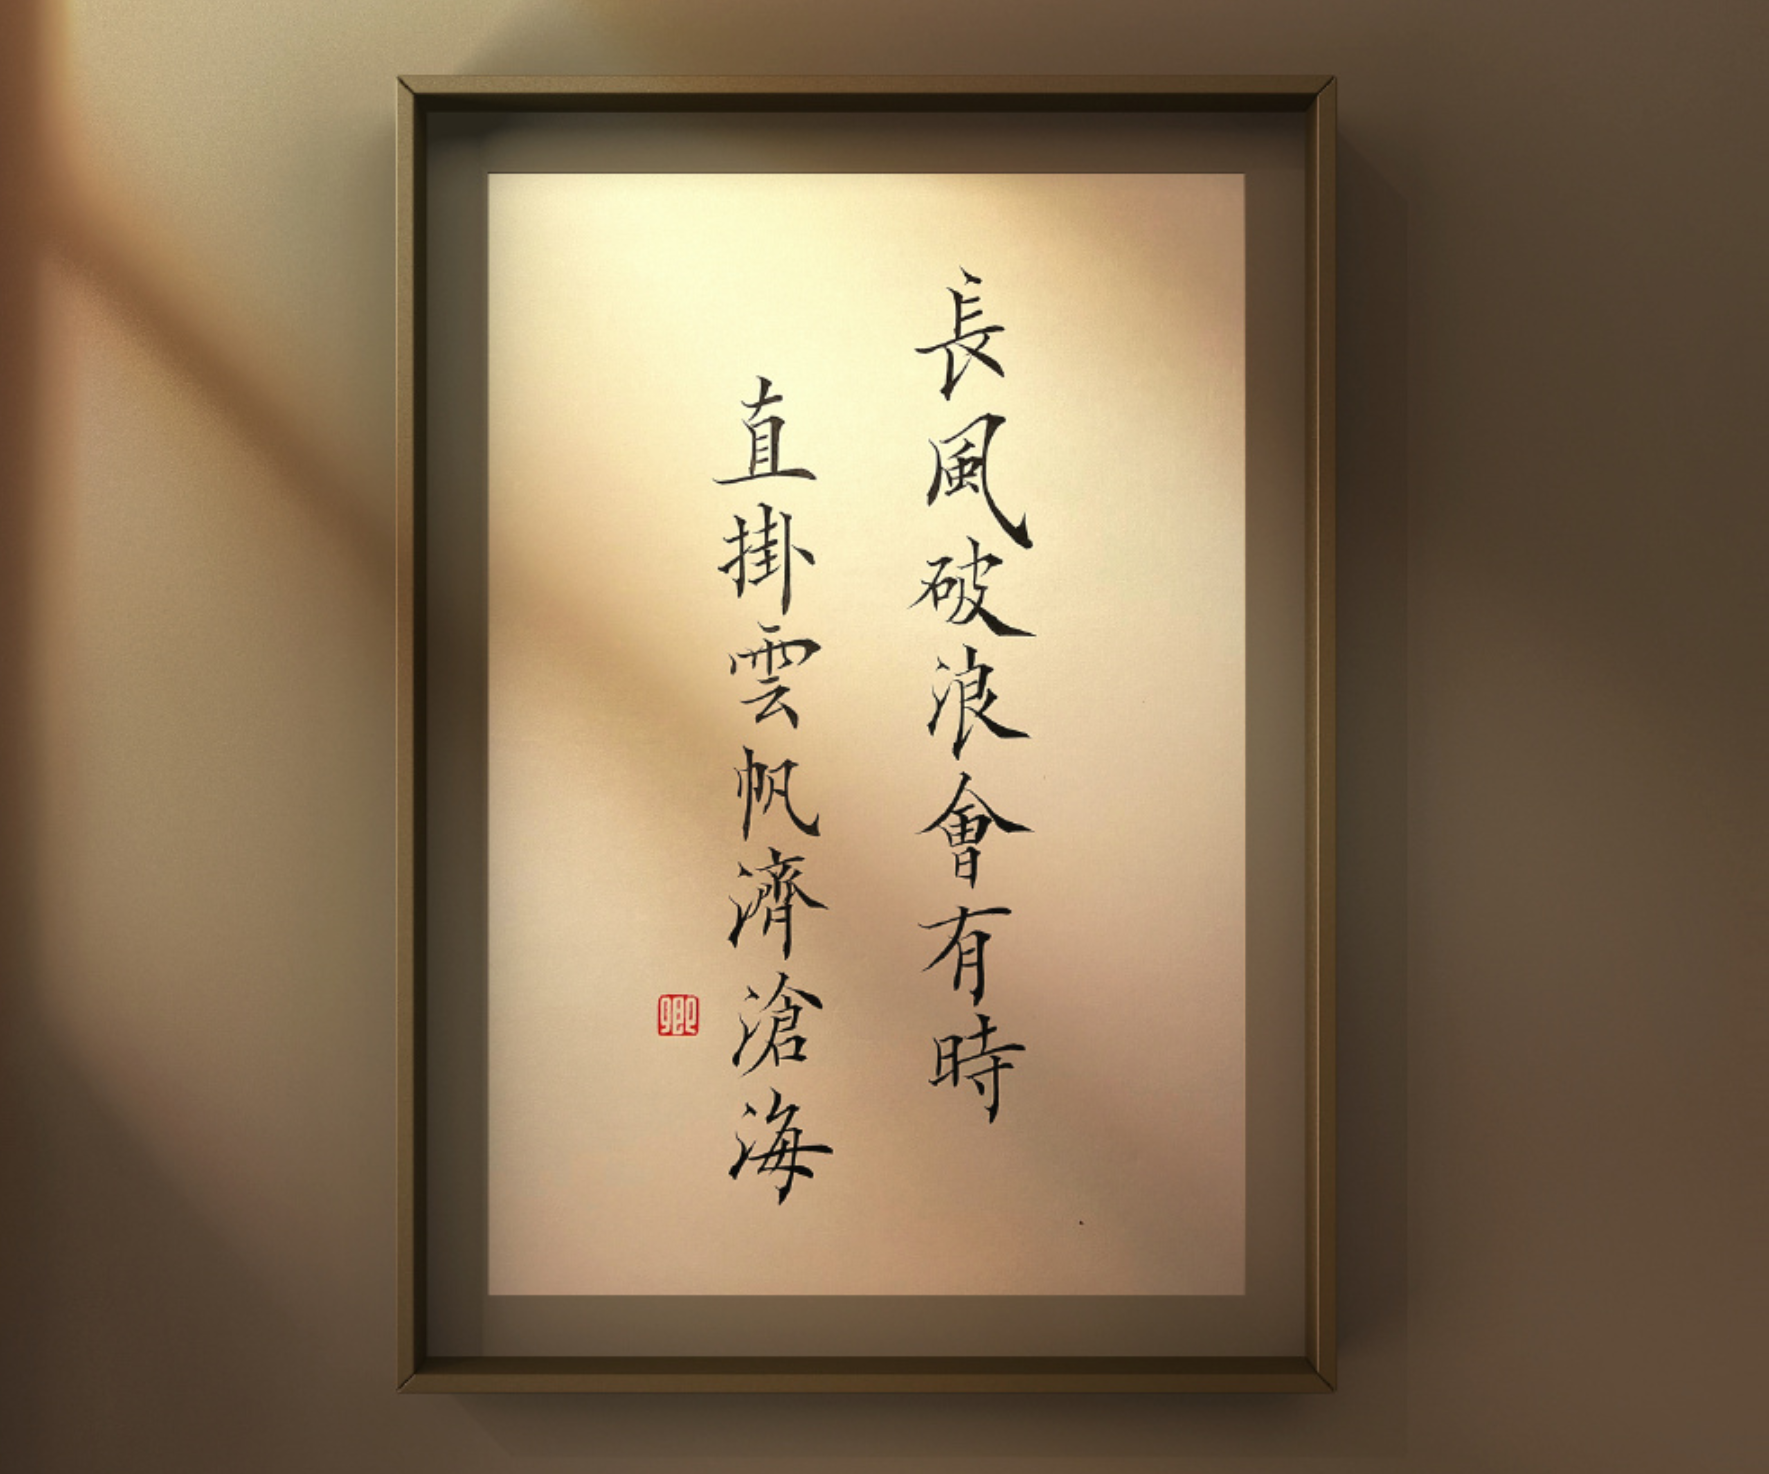 長風破浪會有時
直掛雲帆濟滄海
卿